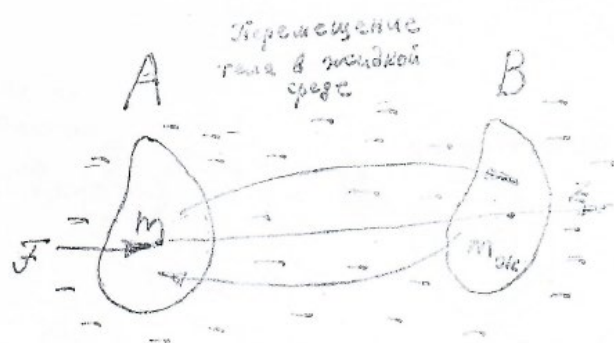 Перемещение
тела в жидкой
среде
A B
m
F
mж